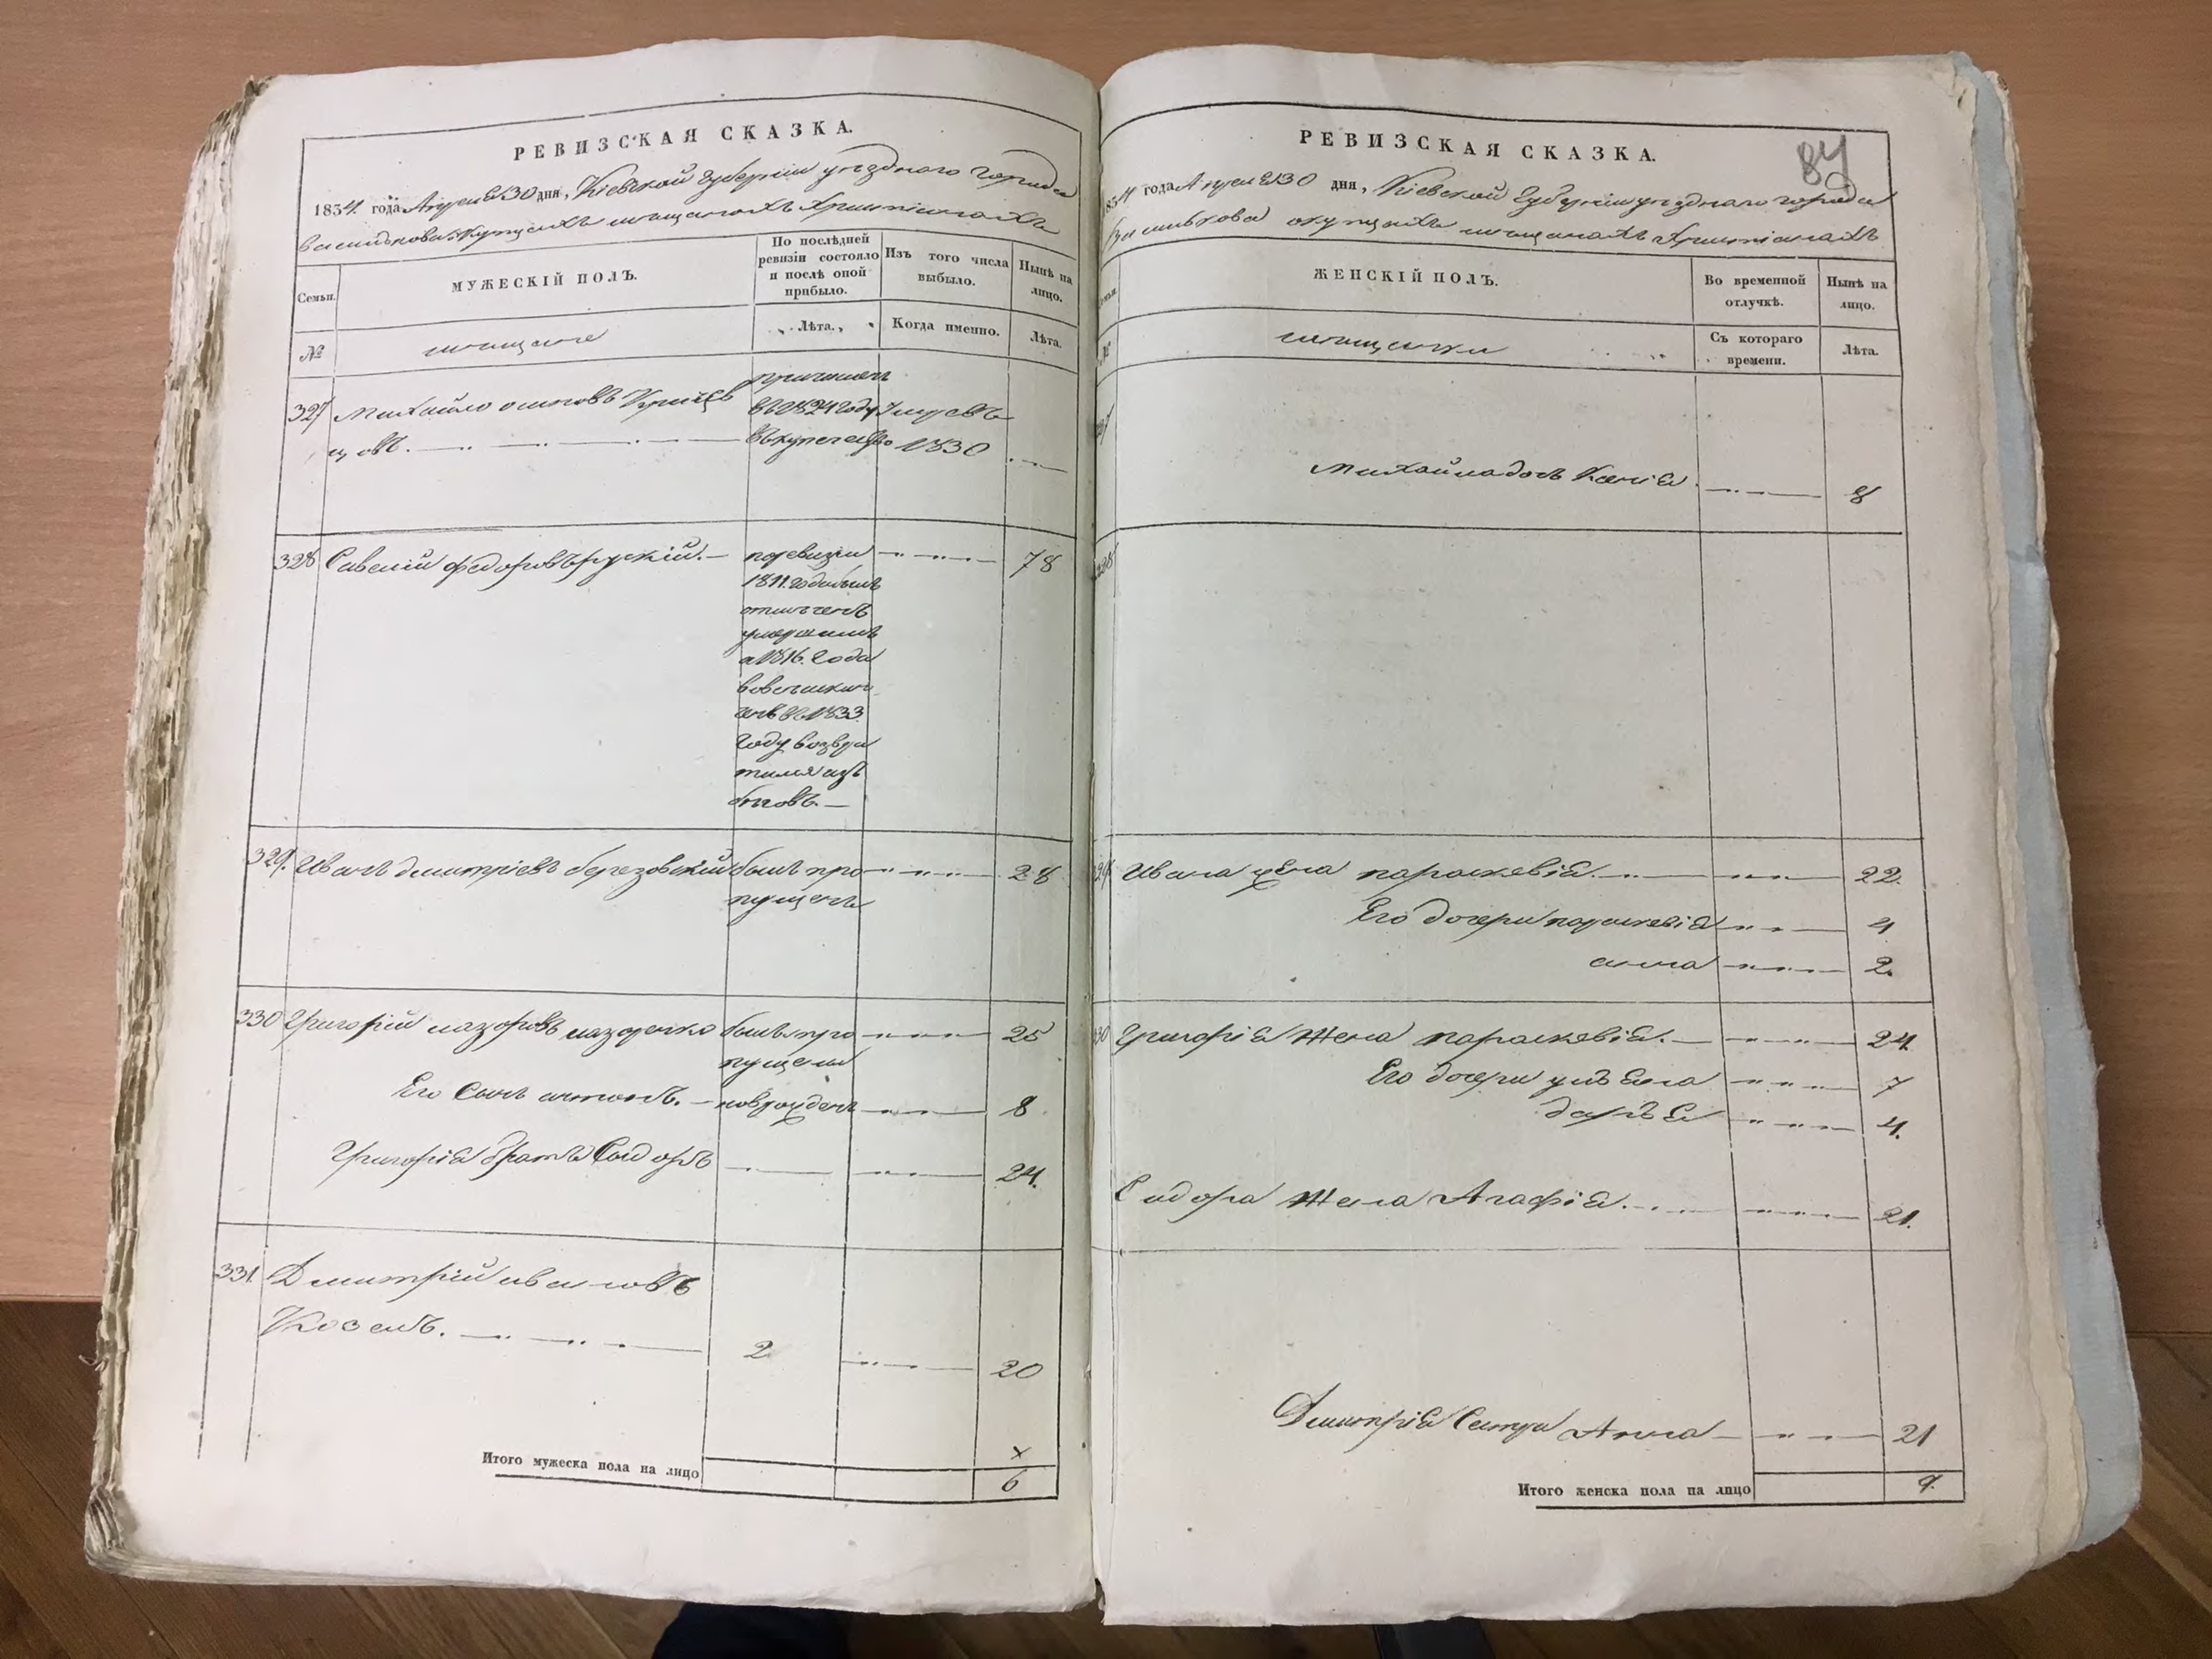 РЕВИЗСКАЯ СКАЗКА.
1834. года Апреля 30 дня, Кіевской Губерніи уезднаго города
Василькова о купцахъ мещанахъ Христіанахъ
Семьи.
МУЖЕСКІЙ ПОЛЪ.
По послѣдней ревизіи состояло и послѣ оной прибыло.
Изъ того числа выбыло.
Нынѣ на лицо.
№
мещане
Лѣта.
Когда именно.
Лѣта.
327 Михайло осиповъ
цовъ. причисленъ
въ 1824 году Умеръ въ
въ купечество 1830
328 Савелій федоровъ рускій. по ревизіи 78
1811. года былъ
отмеченъ
умершимъ
а 1816. Года
въ 1833.
Году возвра
тился изъ
беговъ.
329. Иванъ дмитріевъ березовскій былъ про 28
пущенъ
330 Григорій назаровъ назаренко былъ про 25
пущены
Его Сынъ антонъ. новрожденъ 8
Григорія братъ Сидоръ 24.
331. Дмитрій ивановъ
Козелъ. 2 20
х
Итого мужеска пола на лицо 6
84
РЕВИЗСКАЯ СКАЗКА.
1834 года Апреля 30 дня, Кіевской Губерніи уезднаго города
Василькова о купцахъ мещанахъ Христіанахъ
Семьи.
ЖЕНСКІЙ ПОЛЪ.
Во временной отлучкѣ.
Нынѣ на лицо.
№
мещанки
Съ котораго времени.
Лѣта.
327
Михайла дочь Ксенія 8
328
329. Ивана жена параскевія. 22.
Его дочери параскевія 4
анна 2.
330 Григорія жена параскевія. 24.
Его дочери ульяна 7
дарья 4.
Сидора жена Агафія. 21.
Дмитрія Сестра Анна 21
Итого женска пола на лицо 9.